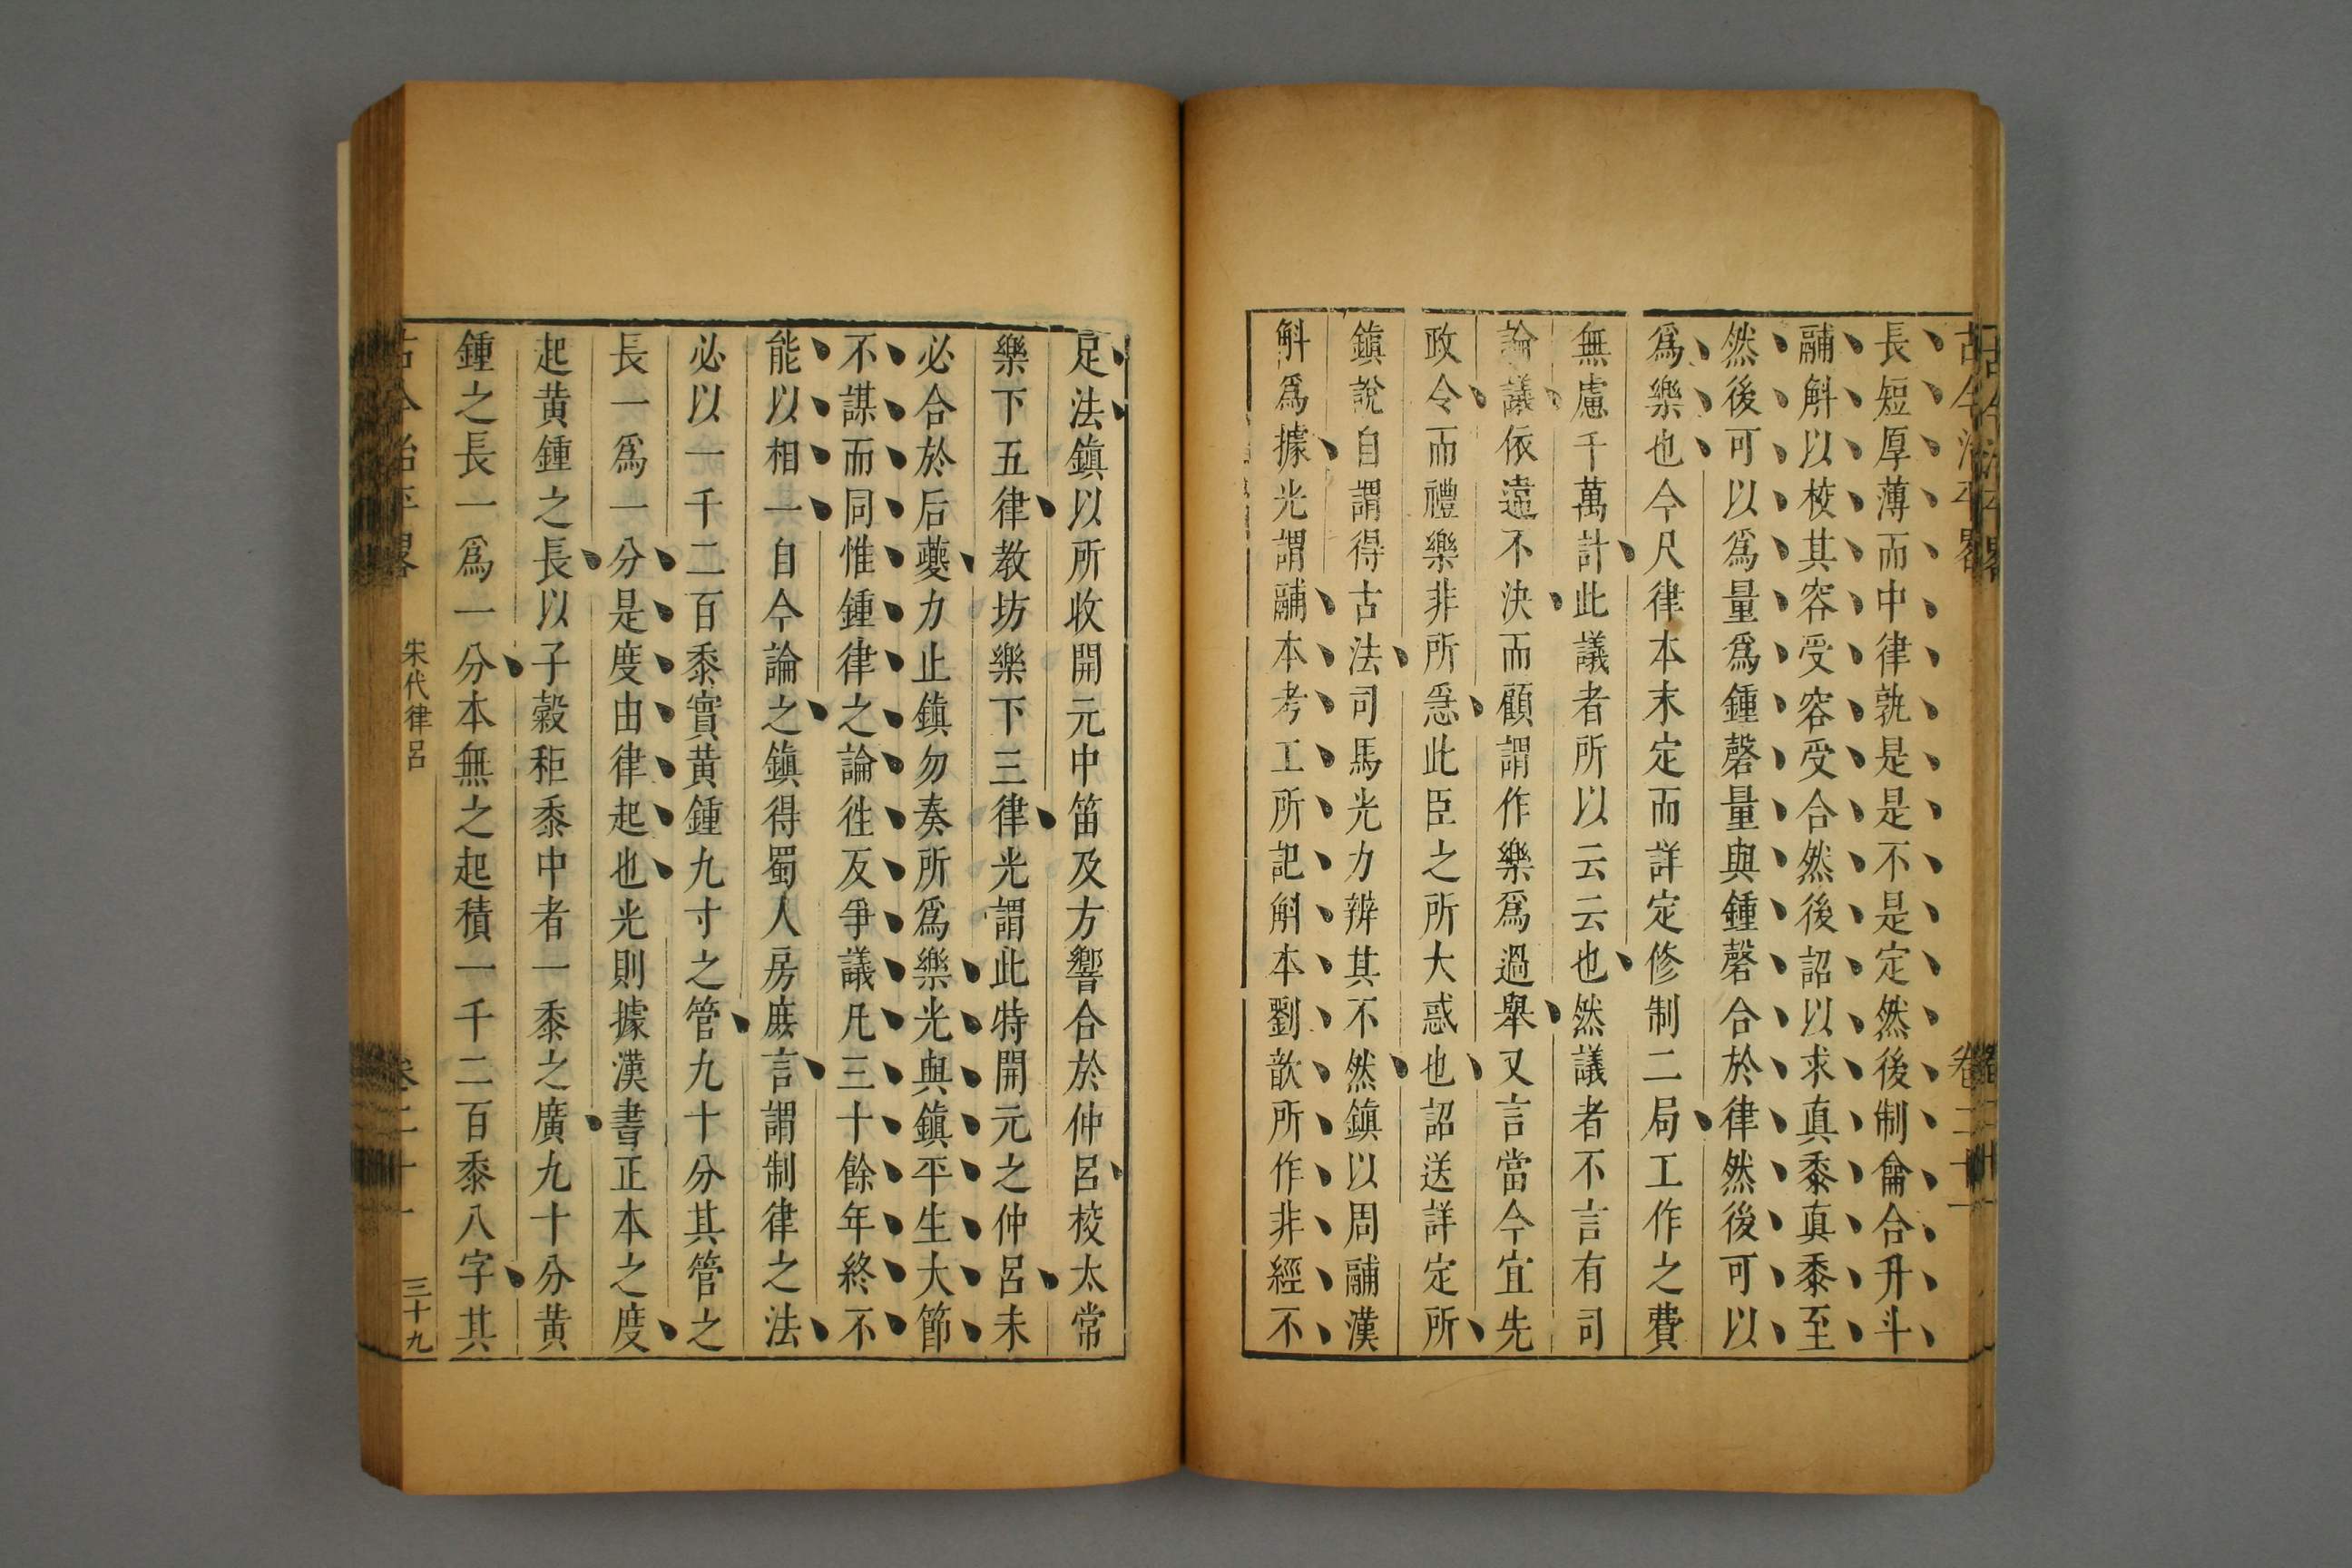 長短厚薄而中律孰是是不是定然後制龠合升斗
鬴斛以校其容受容受合然後詔以求真黍真黍至
然後可以爲量爲鍾磬量與鍾磬合於律然後可以
爲樂也今尺律本末定而詳定修制二局工作之費
無慮千萬計此議者所以云云也然議者不言有司
論議依違不決而顧謂作樂爲過舉又言當今宜先
政令而禮樂非所急此臣之所大惑也詔送詳定所
鎮說自謂得古法司馬光力辨其不然鎮以周鬴漢
斛爲據光謂鬴本考工所記斛本劉歆所作非經不
足法鎮以所收開元中笛及方響合於仲呂校太常
樂下五律教坊樂下三律光謂此特開元之仲呂未
必合於后夔力止鎮勿奏所爲樂光與鎮平生大節
不謀而同惟鍾律之論徃反爭議凡三十餘年終不
能以相一自今論之鎮得蜀人房庶言謂制律之法
必以一千二百黍實黄鍾九寸之管九十分其管之
長一爲一分是度由律起也光則據漢書正本之度
起黄鍾之長以子穀秬黍中者一黍之廣九十分黄
鍾之長一爲一分本無之起積一千二百黍八字其
古今治平畧 宋代律呂 卷二十一 三十九